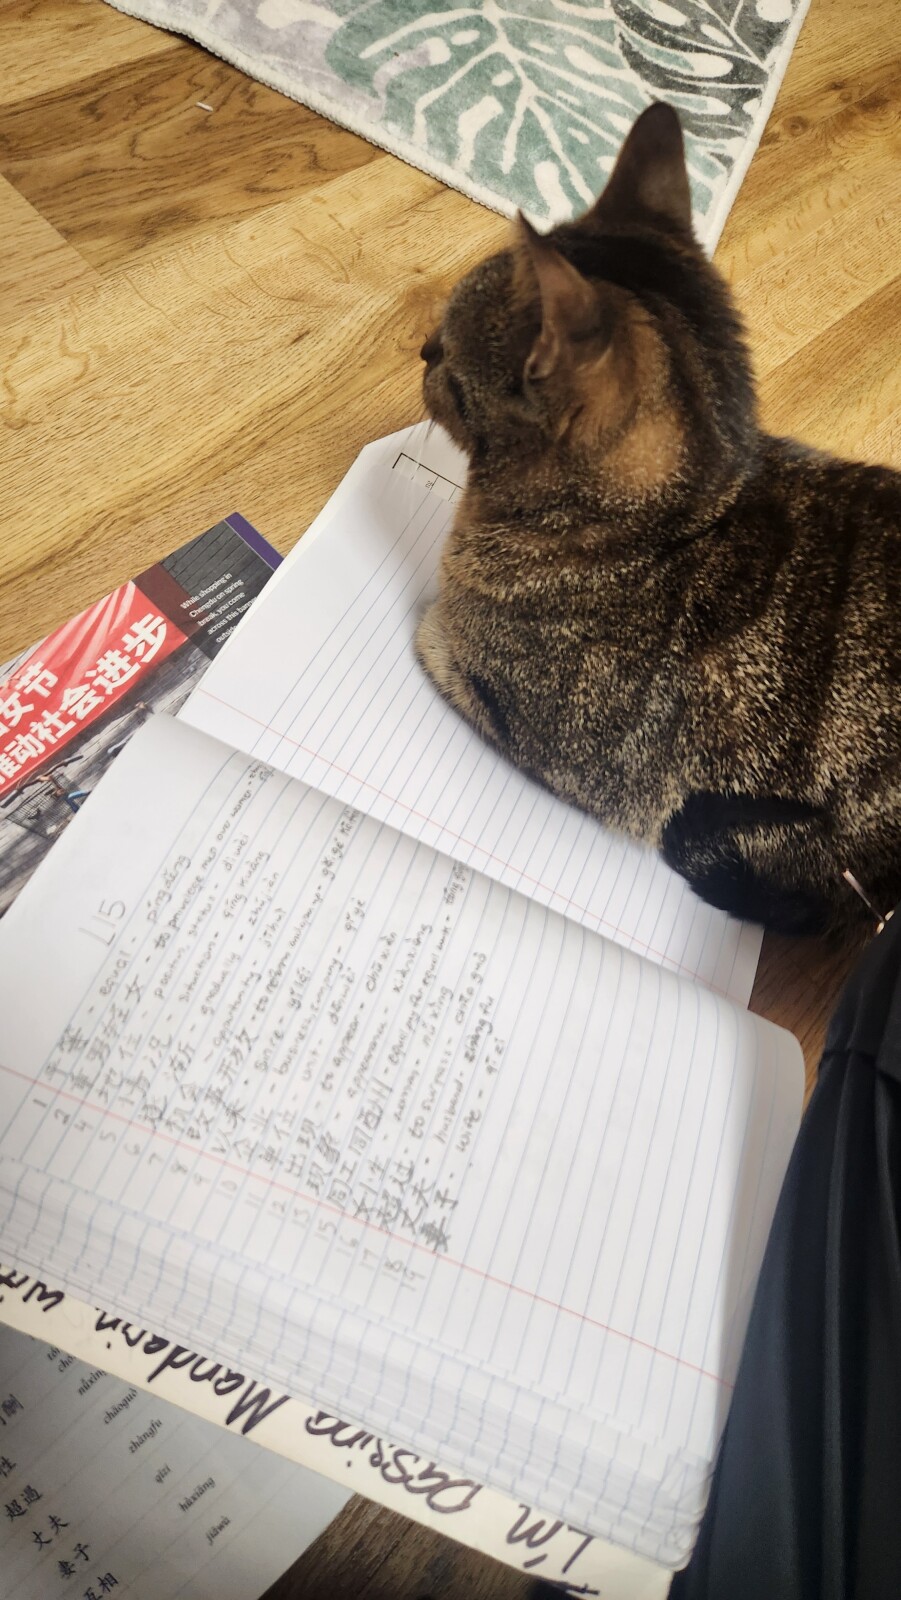 While shopping in
Chengdu on spring
break, you come
across this banner
outside
女节
推动社会进步
L15
1 平等 - equal - píngděng
2 重男轻女 - to privilege men over women -
4 地位 - position, status - dìwèi
5 情况 - situation - qíng kuàng
6 逐渐 - gradually - zhújiàn
7 机会 - opportunity - jīhuì
8 改革开放 - to reform and open up - gǎigé kāi
9 以来 - since - yǐlái
10 企业 - business, company - qǐyè
11 单位 - unit - dānwèi
12 出现 - to appear - chūxiàn
13 现象 - appearance - xiànxiàng
15 同工同酬 - equal pay for equal work - tóng gōng
16 女性 - woman - nǚxìng
17 超过 - to surpass - chāoguò
18 丈夫 - husband - zhàng fu
19 妻子 - wife - qīzi
I'm passing Mandarin with
酬
性 nǚxìng
超過 chāoguò
丈夫 zhàngfu
妻子 qīzi
互相 hùxiāng
jiāwù